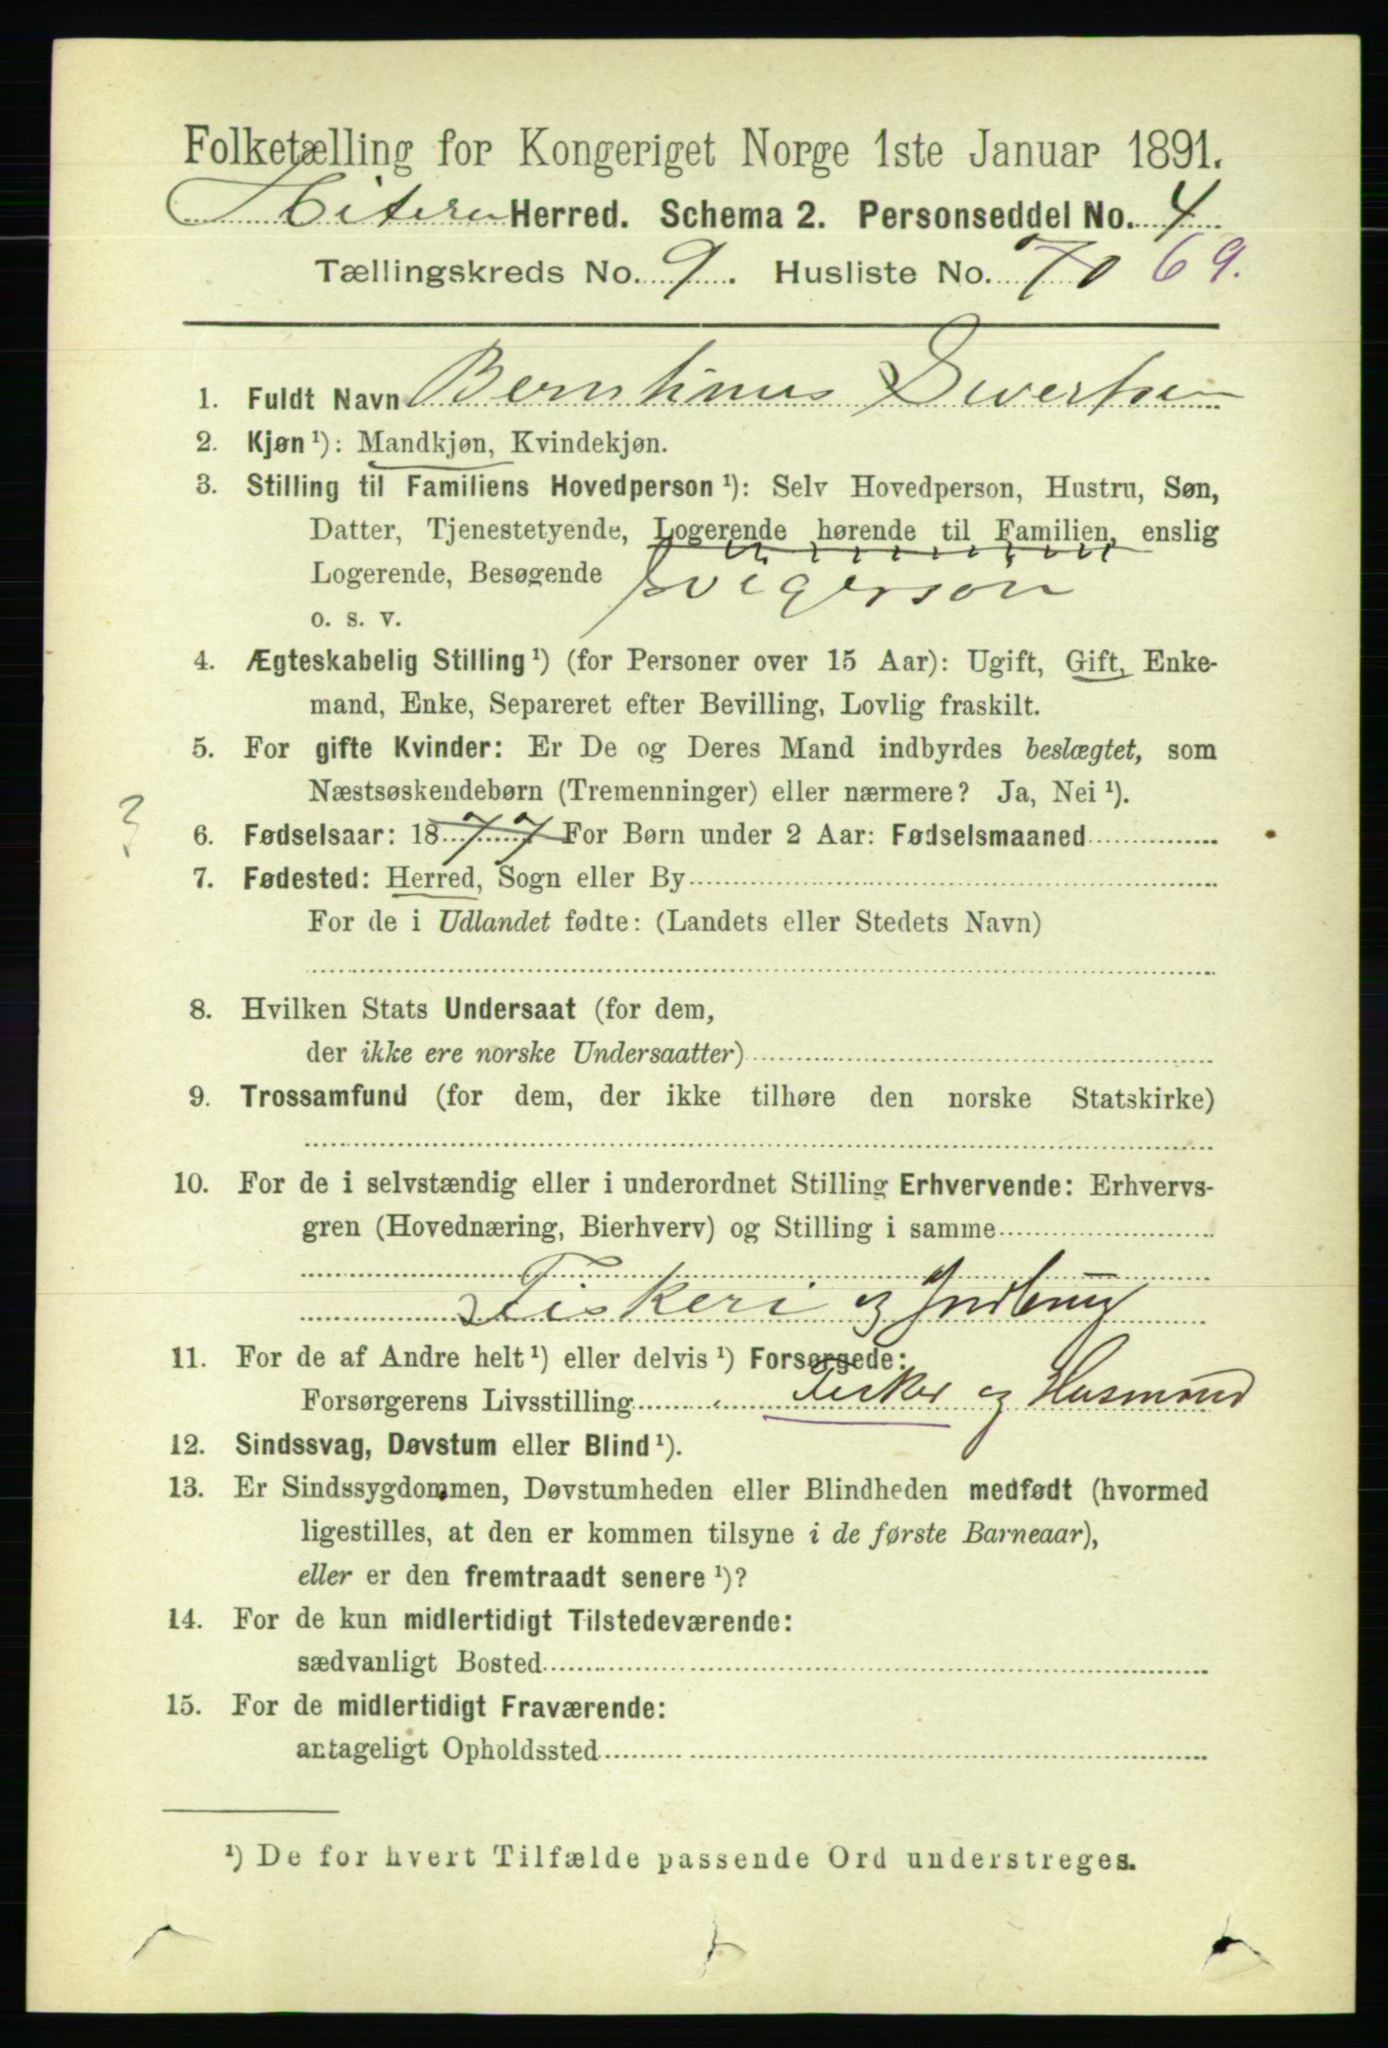 Folketælling for Kongeriget Norge 1ste Januar 1891.
Hiteren Herred. Schema 2. Personseddel No. 4
Tællingskreds No. 9. Husliste No. 70 69.
1. Fuldt Navn Berntinus Sivertsen
2. Kjøn ¹): Mandkjøn, Kvindekjøn.
3. Stilling til Familiens Hovedperson ¹): Selv Hovedperson, Hustru, Søn,
Datter, Tjenestetyende, Logerende hørende til Familien, enslig
Logerende, Besøgende Svigersøn
o. s. v.
4. Ægteskabelig Stilling ¹) (for Personer over 15 Aar): Ugift, Gift, Enke-
mand, Enke, Separeret efter Bevilling, Lovlig fraskilt.
5. For gifte Kvinder: Er De og Deres Mand indbyrdes beslægtet, som
Næstsøskendebørn (Tremenninger) eller nærmere? Ja, Nei ¹).
?
6. Fødselsaar: 1877 For Børn under 2 Aar: Fødselsmaaned
7. Fødested: Herred, Sogn eller By
For de i Udlandet fødte: (Landets eller Stedets Navn)
8. Hvilken Stats Undersaat (for dem,
der ikke ere norske Undersaatter)
9. Trossamfund (for dem, der ikke tilhøre den norske Statskirke)
10. For de i selvstændig eller i underordnet Stilling Erhvervende: Erhvervs-
gren (Hovednæring, Bierhverv) og Stilling i samme
Fiskeri og Jordbrug
11. For de af Andre helt ¹) eller delvis ¹) Forsørgede:
Forsørgerens Livsstilling Fisker og Husmand
12. Sindssvag, Døvstum eller Blind ¹).
13. Er Sindssygdommen, Døvstumheden eller Blindheden medfødt (hvormed
ligestilles, at den er kommen tilsyne i de første Barneaar),
eller er den fremtraadt senere ¹)?
14. For de kun midlertidigt Tilstedeværende:
sædvanligt Bosted
15. For de midlertidigt Fraværende:
antageligt Opholdssted
¹) De for hvert Tilfælde passende Ord understreges.